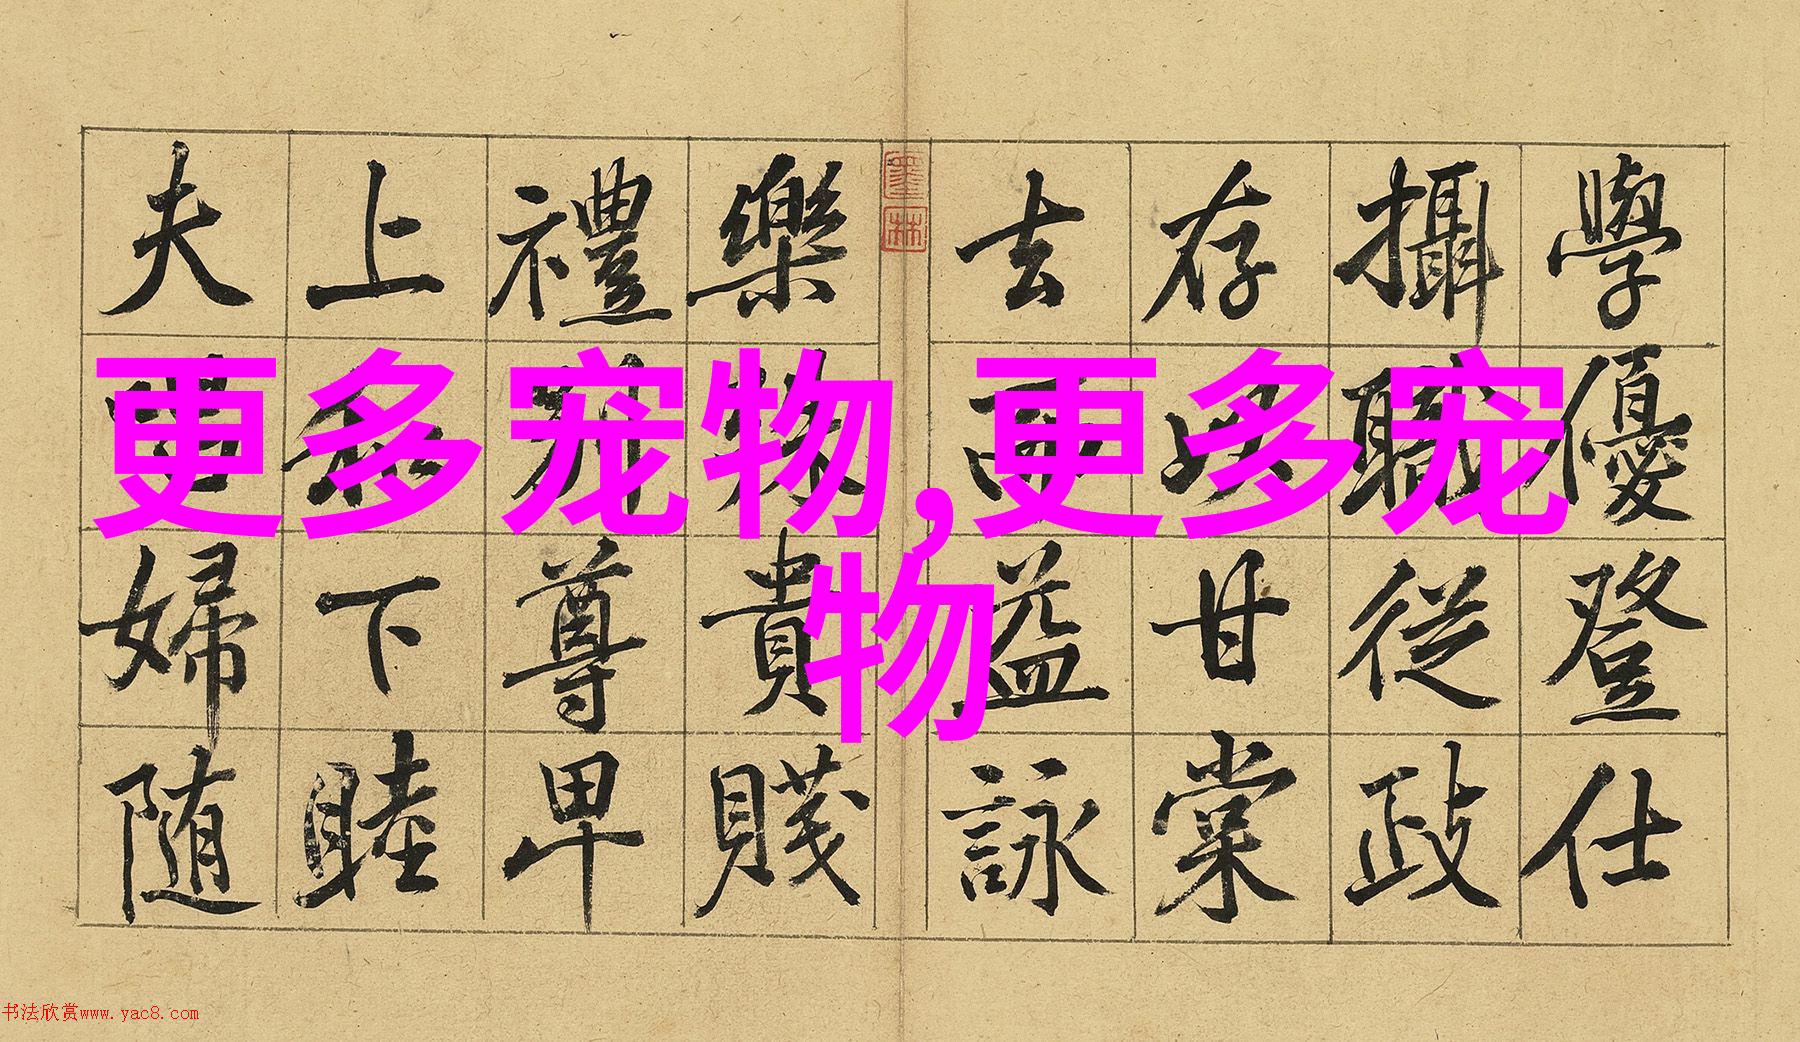 學優登仕
攝職從政
存以甘棠
去而益詠
樂殊貴賤
禮別尊卑
上和下睦
夫唱婦随
墨林
更多宠物,更多宠
物
书法欣赏www.yac8.com